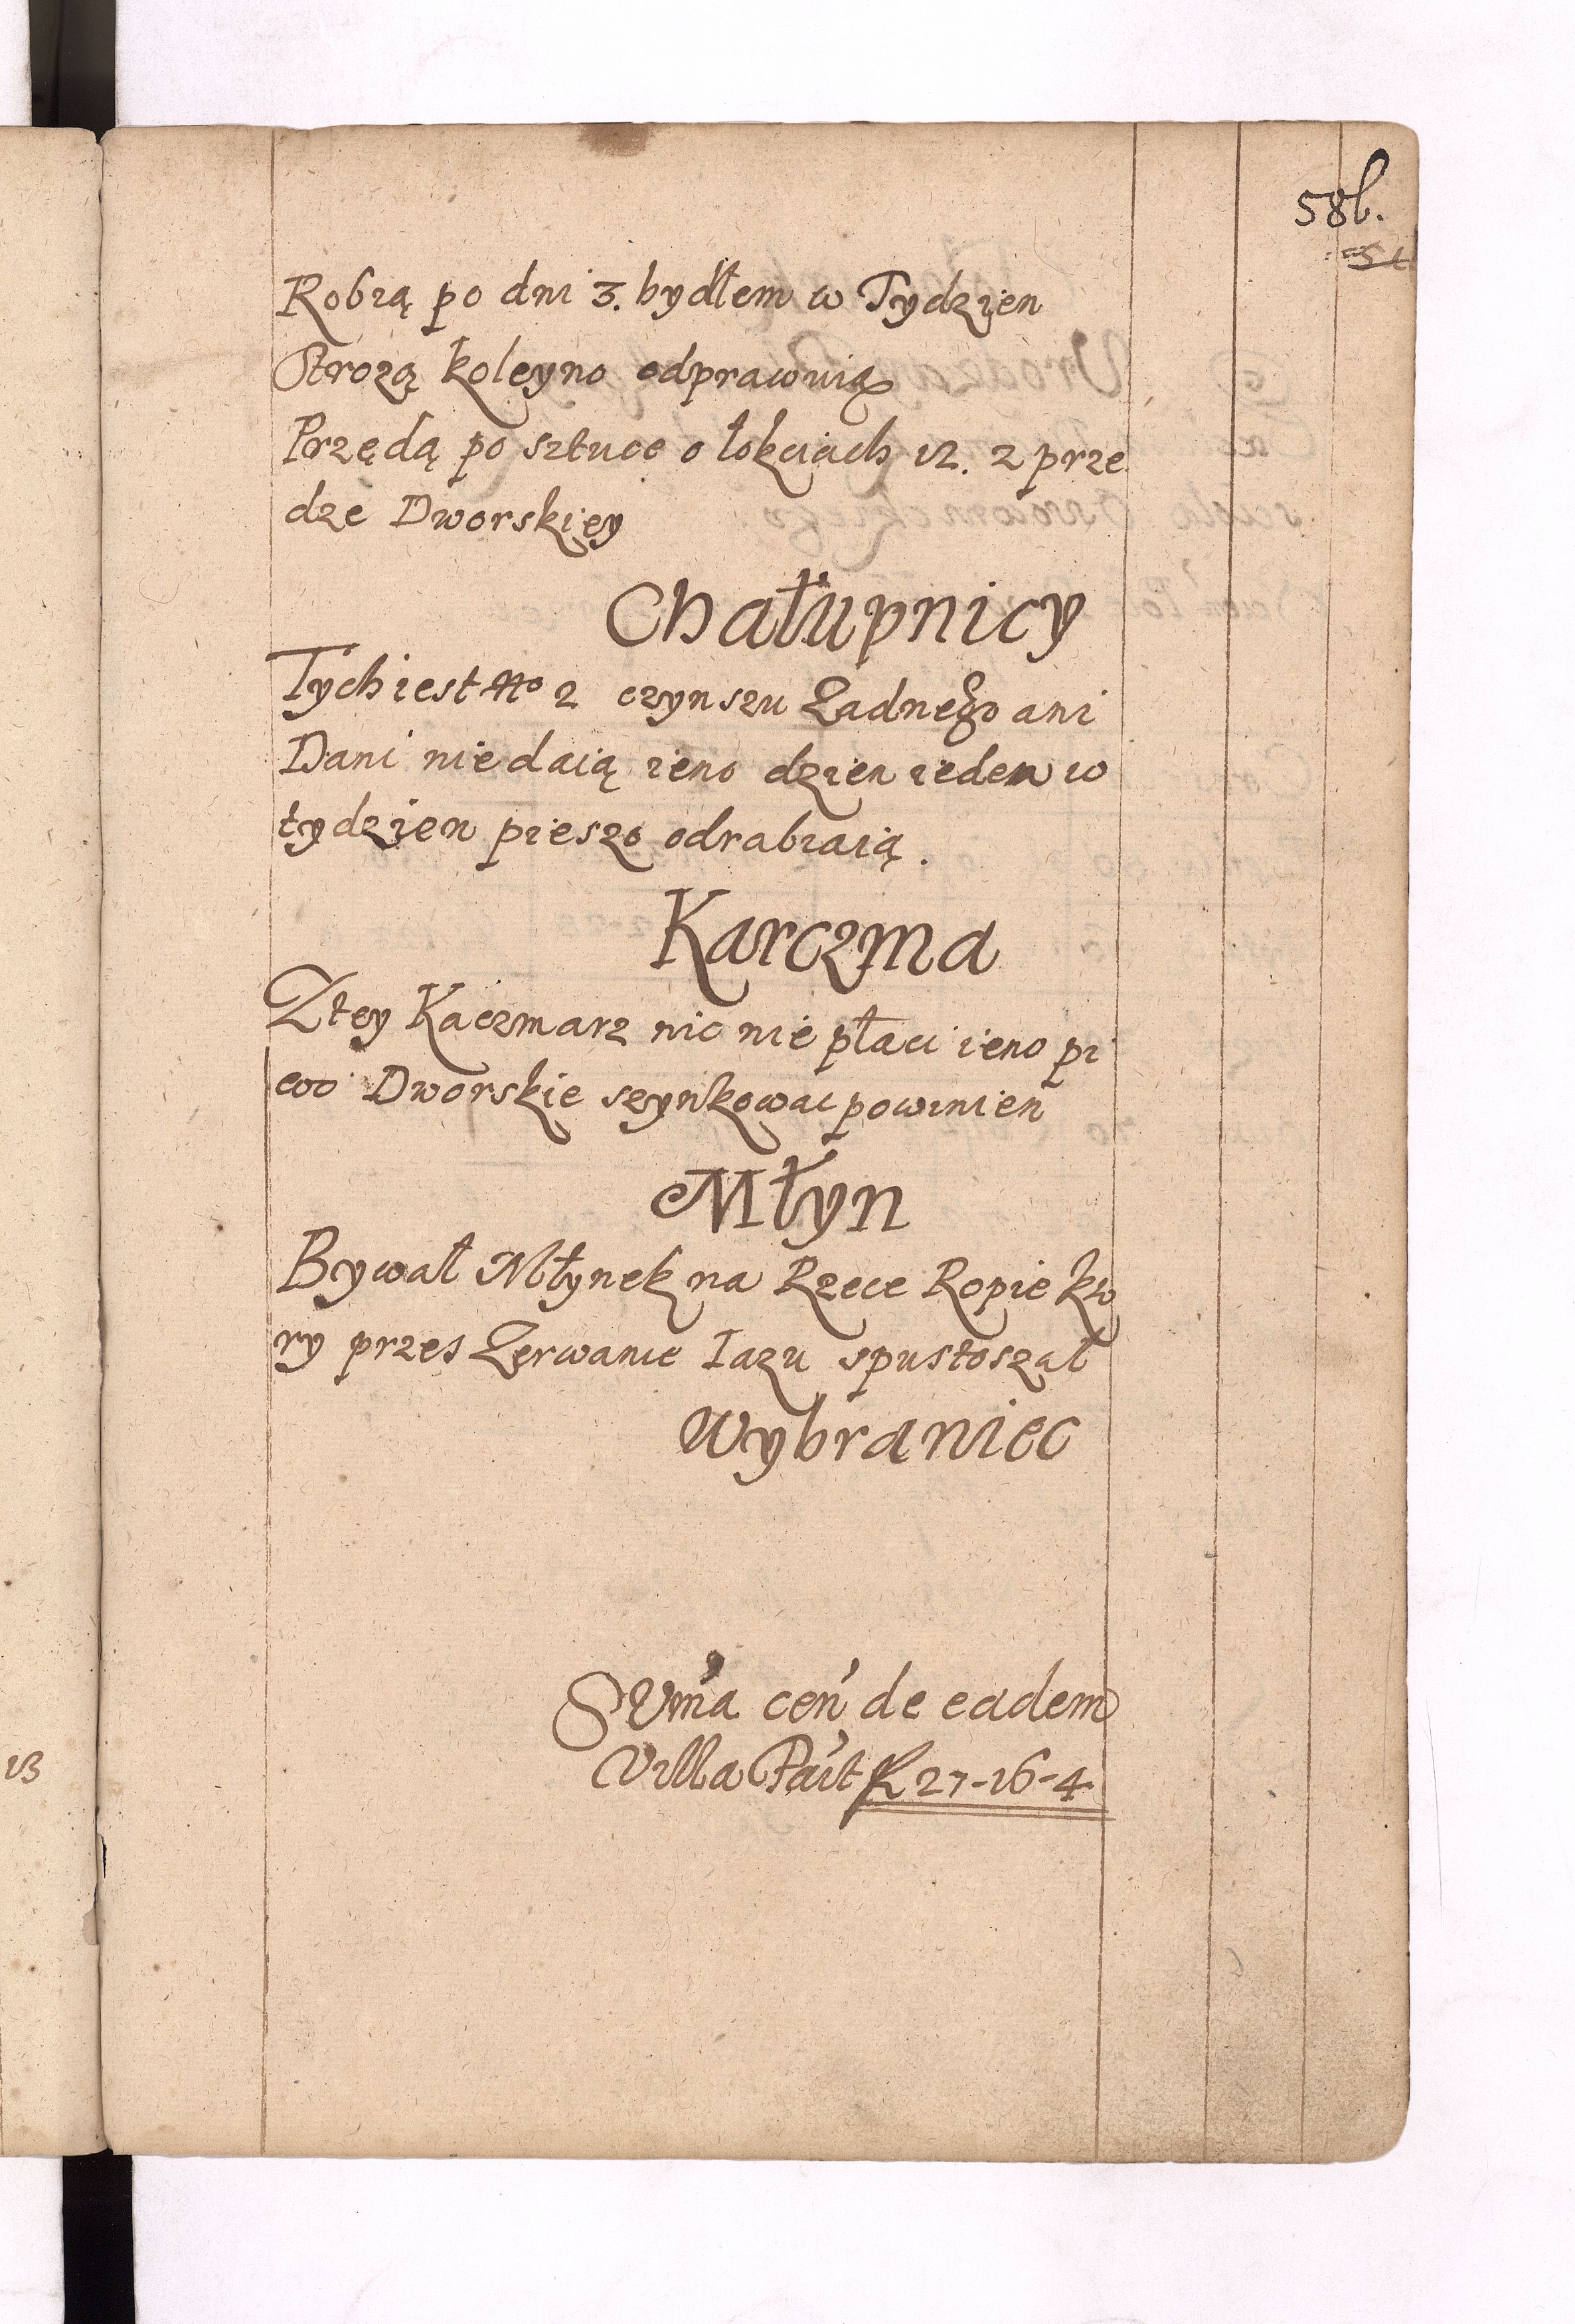 58b.
Robią po dni 3. bydłem w Tydzien
Strozą koleyno odprawuią
Przędą po sztuce o łokciach 12. z prze
dze Dworskiey
Chałupnicy
Tych iest No 2 czynszu Zadnego ani
Dani nie daią ieno dzien ieden w
tydzien pieszo odrabiaią.
Karczma
Z tey Kaczmarz nic nie płaci ieno pi
wo Dworskie szynkowac powinien
Młyn
Bywał Młynek na Rzece Ropie kto
ry przes Zerwanie Iazu spustoszał
Wybraniec
Suma cen de eadem
Villa Fait fl 27-16-4
13